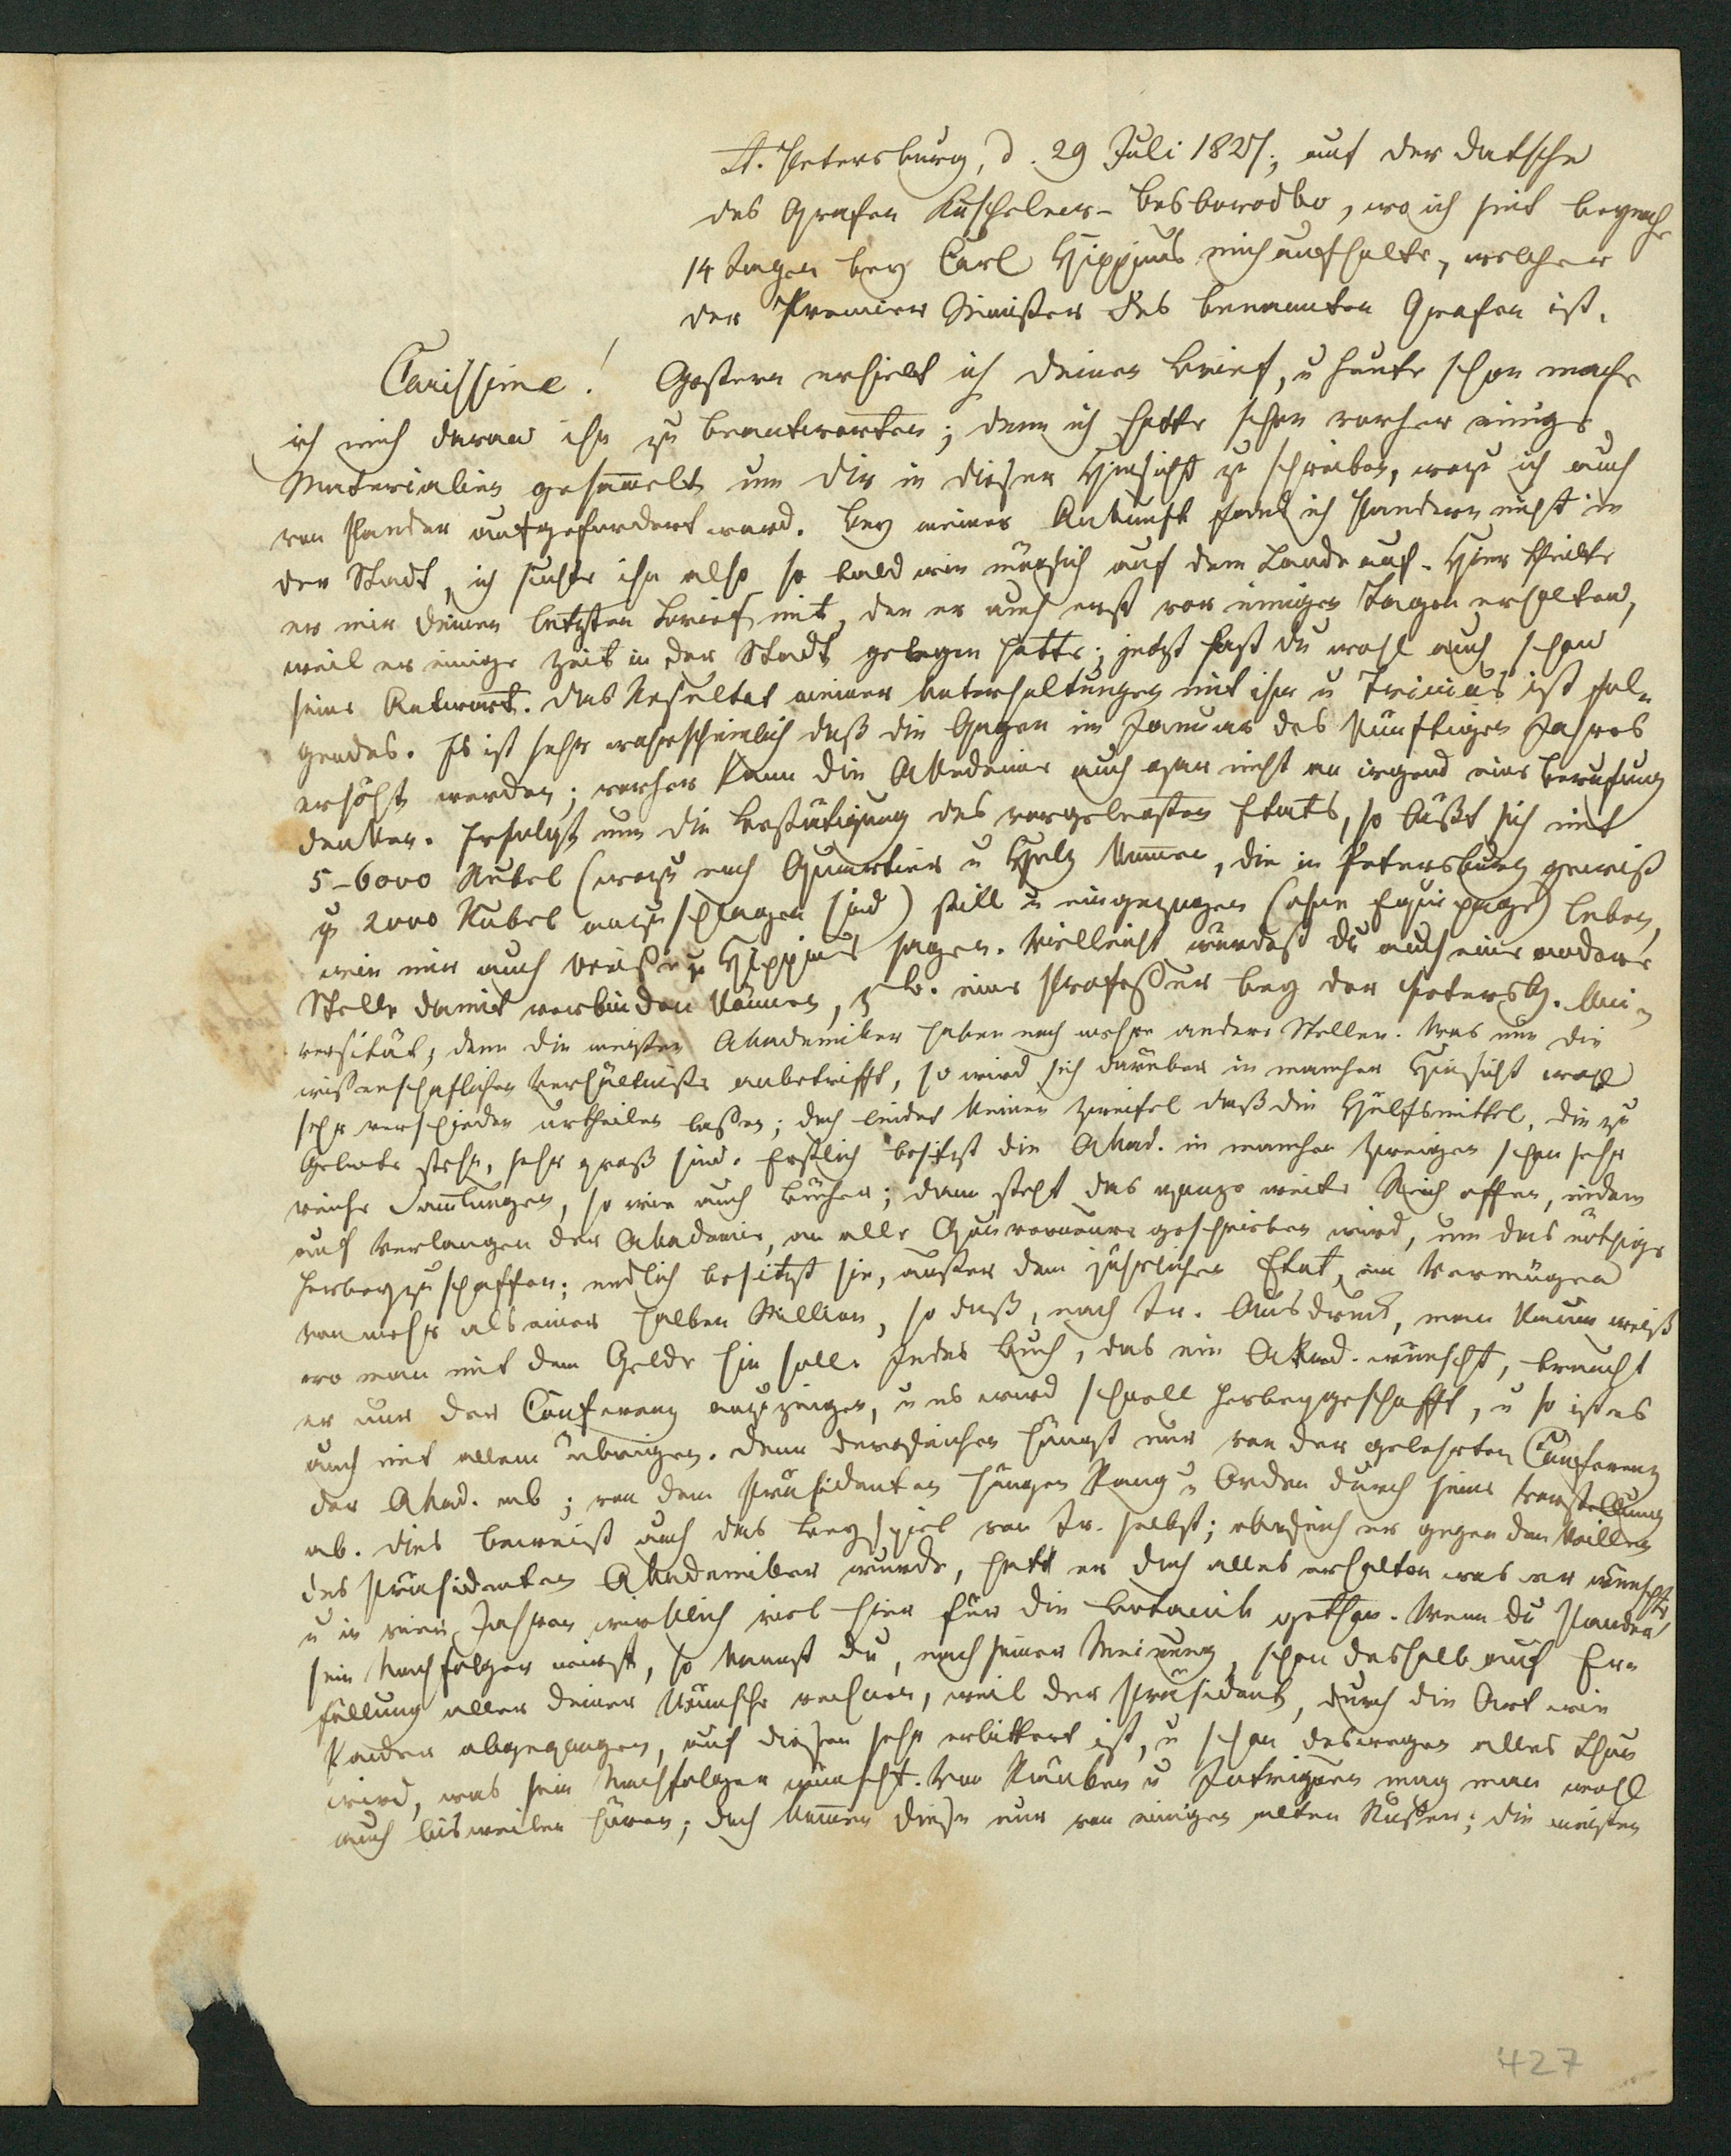 St. Petersburg, d. 29 Juli 1827, auf der Datsche
des Grafen Kuschelew-Besborodko, wo ich seit beynahe
14 Tagen bey Carl Hippius mich aufhalte, welcher
der Premier Minister des benannten Grafen ist.
Carissime! Gestern erhielt ich deinen Brief, u heute schon mache
ich mich daran ihn zu beantworten; denn ich hatte schon vorher einige
Materialien gesammelt um dir in dieser Hinsicht zu schreiben, wozu ich auch
von Pander aufgefordert ward. Bey meiner Ankunft fand ich Pandern nicht in
der Stadt, ich suchte ihn also so bald wie möglich auf dem Lande auf. Hier theilte
er mir deinen letzten Brief mit, den er auch erst vor einigen Tagen erhalten,
weil er einige Zeit in der Stadt gelegen hatte; jetzt hast du wohl auch schon
seine Antwort. Das Resultat meiner Unterhaltungen mit ihm u Trinius ist fol-
gendes. Es ist sehr wahrscheinlich daß die Gagen im Januar des künftigen Jahres
erhöht werden; vorher kann die Akademie auch gar nicht an irgend eine Berufung
denken. Erfolgt nun die Bestätigung des vorgelegten Etats, so läßt sich mit
5-6000 Rubel (wozu noch Quartier u Holz kommen, die in Petersburg gewiß
zu 2000 Rubel anzuschlagen sind) still u eingezogen (ohne Equipage) leben,
wie mir auch Weisse u Hippius sagen. Vielleicht würdest du auch eine andere
Stelle damit verbinden können, z. B. eine Professur bey der Petersb. Uni-
versität, denn die meisten Akademiker haben noch mehre andere Stellen. Was nun die
wissenschaftlichen Verhältnisse anbetrifft, so wird sich darüber in mancher Hinsicht wohl
sehr verschieden urtheilen lassen; doch leidet keinen Zweifel daß die Hülfsmittel, die zu
Gebote stehn, sehr groß sind. Erstlich besitzt die Akad. in manchen Zweigen schon sehr
reiche Sammlungen, so wie auch Bücher; dann steht das ganze weite Reich offen, indem
auf Verlangen der Akademie, an alle Gouverneure geschrieben wird, um das nöthige
herbeyzuschaffen; endlich besitzt sie, außer dem jährlichen Etat, ein Vermögen
von mehr als einer halben Million, so daß, nach Tr. Ausdruck, man kaum weiß
wo man mit dem Gelde hin soll. Jedes Buch, das ein Akad. wünscht, braucht
er nur der Conferenz anzuzeigen, u es wird schnell herbeygeschafft, u so ist es
auch mit allem übrigen. Denn dergleichen hängt nur von der gelehrten Conferenz
der Akad. ab; von dem Präsidenten hängen Rang u Orden durch seine Vorstellung
ab. Dies beweist auch das Beyspiel von Tr. selbst; obgleich er gegen den Willen
des Präsidenten Akademiker wurde, hat er doch alles erhalten was er wünschte,
u in vier Jahren wirklich viel hier für die Botanik gethan. Wenn du Pander's
sein Nachfolger wirst, so kannst du, nach seiner Meinung, schon deshalb auf Er-
füllung aller deiner Wünsche rechnen, weil der Präsident, durch die Art wie
Pander abgegangen, auf diesen sehr erbittert ist, u schon deswegen alles thun
wird, was sein Nachfolger wünscht. Von Kabalen u Intriguen mag man wohl
auch bisweilen hören; doch kommen diese nur von einigen alten Russen; die meisten
427